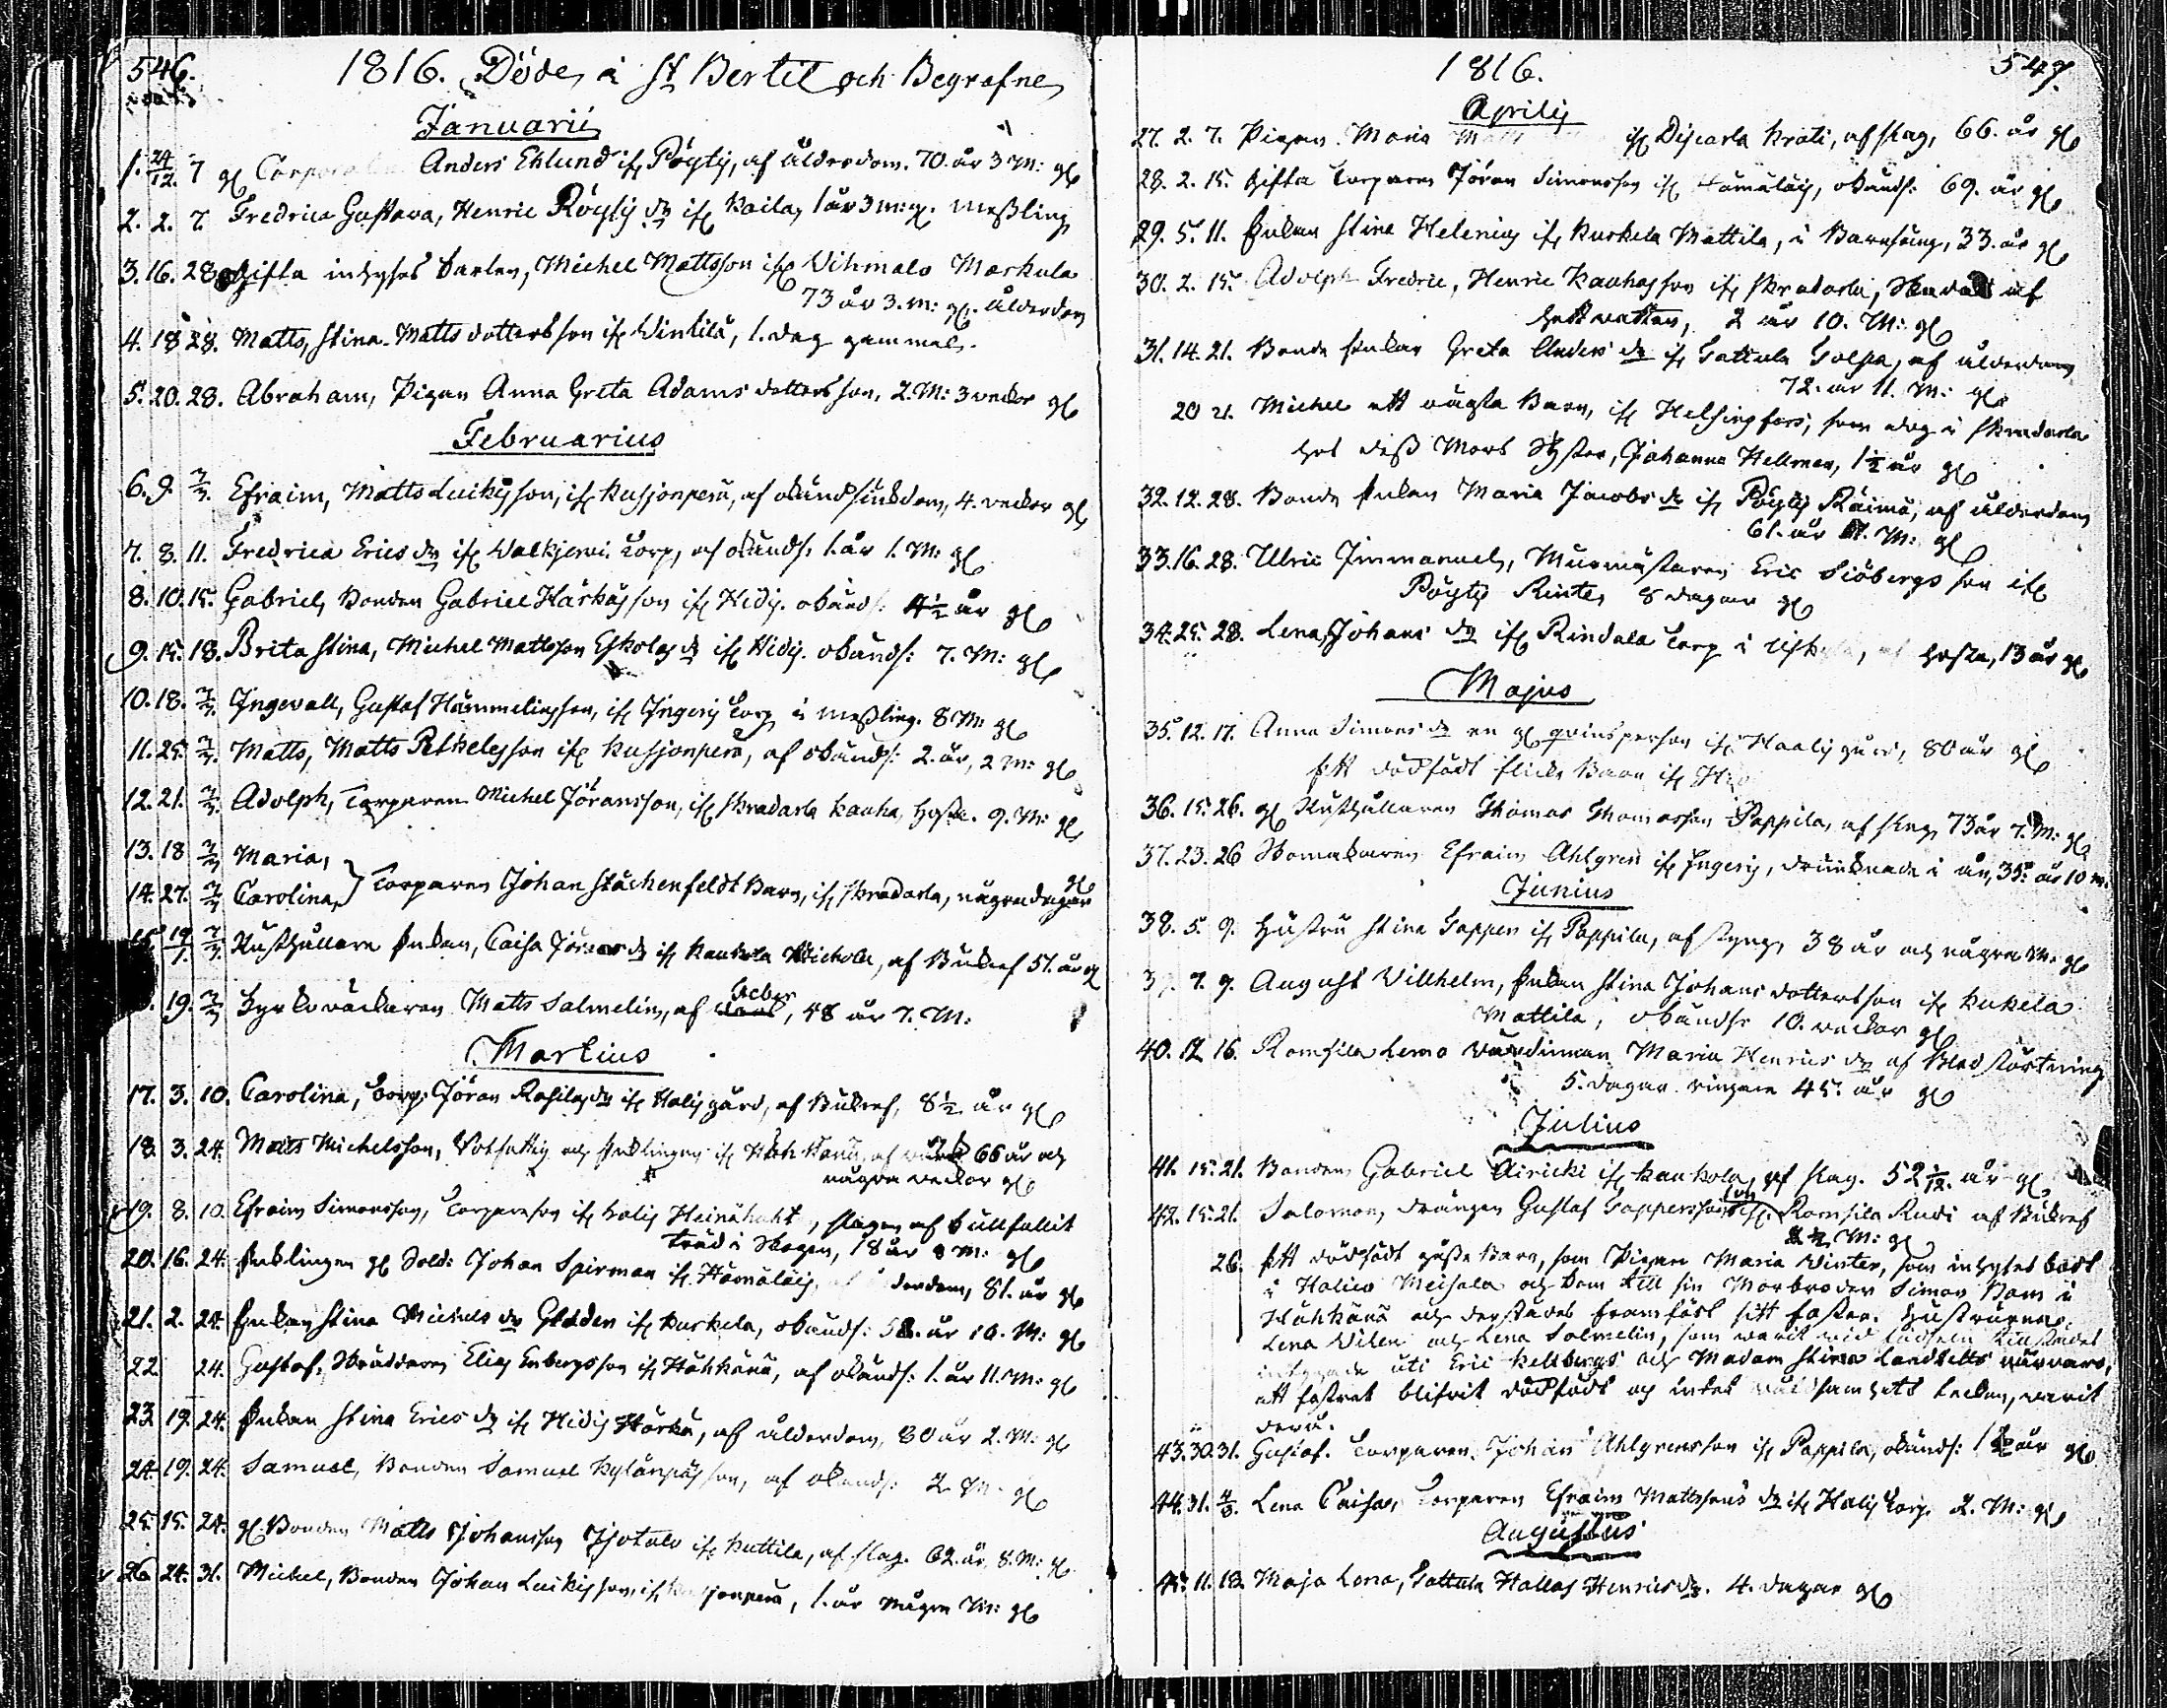 546.
1816. Döde i St Bertil och Begrafne
Januarii
1. 24/12. 7 gl Corporalen Anders Ehlund if. Pöytij, af ålderdom. 70. år 3 M: gl
2. 2. 7. Fredrica Gustava, Henric Pöytij dr if. Kaila, 1 år 3 m: gl. meßling
3. 16. 28 Gifta inhyses karlen, Michel Mattsson if. Vihmalo Markula
73 år 3. m: gl. ålderdom
4. 18 28. Matts, Stina Mattsdotters son if. Vintilä, 1. dag gammal.
5. 20. 28. Abraham, Pigan Anna Greta Adamsdotters son, 2. M: 3 veckor gl
Februarius
6. 9 3/3. Efraim, Matts Luikis son, if. Kusjonperä, af okänd sjukdom, 4. veckor gl
7. 8. 11. Fredrica Erics dr if. Walkjerwi Torp, af okänds: 1. år 1. M: gl
8. 10. 15. Gabriel, Bonden Gabriel Härkäs son if. Hidis. okänds: 4½ år gl
9. 15. 18. Brita Stina, Michel Mattsson Eskolas dr if. Hidis. okänds: 7. M: gl
10. 18. 3/3. Ingevall, Gustaf Hammelins son, if. Ingeris Torp i meßling. 8 M: gl
11. 25. 3/3. Matts, Matts Petkeles son if. Kusjonperä, af okänds: 2. år, 2 m: gl
12. 21. 3/3. Adolph, Torparen Michel Jöransson, if. Skradarla Kauha, hosta. 9. M: gl
13. 18 3/3 Maria,
14. 27. 3/3 Carolina, } Torparen Johan Stächenfeldt Barn, if. Skradarla, några dagar gl
15 19/1 3/3. Rusthållare Enkan, Caisa Jörans dr if. Kaukola Michola, af Bukref 57. år gl
19. 3/3 Kyrkoväktaren Matts Salmelin, af feber, 48 år 7. M:
Martius
17. 3. 10. Carolina, Torp: Jöran Rasilas dr if. Halis gård, af Bukref, 8½ år gl
18. 3. 24. Matts Michelsson, Rotfattig och Enklingen if. Häh Känä, af 66 år och
några veckor gl
19. 8. 10. Efraim Simonsson, Torpareson if. Halis Heinähaht, slagen af kullfallit
träd i Skogen, 18 år 8 M: gl
20. 16. 24. Enklingen gl Sold: Johan Spirman if. Hämäläis, derdom, 81. år gl
21. 2. 24. Enkan Stina Michels dr Gladen if. Kuskela, okänds: 58. år 10. M: gl
22 24. Gustaf, Skräddaren Elias Enbergs son if. Hähkänä, af okänds: 1. år 11. M: gl
23. 19. 24. Enkan Stina Erics dr if. Hidis Härkä, af ålderdom, 80 år 2. M: gl
24. 19. 24. Samuel, Bonden Samuel Kylänpääs son, af okänds: 2 M: gl
25. 15. 24. gl Bonden Matts Johansson Isotalo if. Kuttila, af slag. 62. år 8. M: gl
26. 24. 31. Michel, Bonden Johan Luikis son, if. jonperä, 1. år några M: gl
1816.
547.
Aprilis
27. 2. 7. Pigan Maria Matts if. Discarla Krati, af slag, 66. år gl
28. 2. 15. Gifta Torparen Jöran Simonsson if. Hämäläis, okänds: 69. år gl
29. 5. 11. Enkan Stina Helenius if. Kuskela Mattila, i Barnsäng, 33. år gl
30. 2. 15. Adolph Fredric, Henric Kauhas son if. Skradarla, Skadad af
hett vatten, 2 år 10. M: gl
31. 14. 21. Bonde Enkan Greta Anders dr if. Tattula Tolpa, af ålderdom
72. år 11. M: gl
20 21. Michel ett oägta Barn, if. Helsingfors, som dog i Skradarla
hos deß Mors Syster, Johanna Hellman, 1½ år gl
32. 12. 28. Bonde Enkan Maria Jacobs dr if. Pöytis Räimä, af ålderdom
61. år M: gl
33. 16. 28. Ulric Immanuel, Murmästaren Eric Siöbergs son if.
Pöytis Rinte, 8 dagar gl
34. 25. 28. Lena, Johans dr if. Rindala Torp i, af hosta, 13 år gl
Majus
35. 12. 17. Anna Simons dr en gl qvinsperson if. Haalis gård, 80 år gl
Ett dödfödt flicke Barn if.
36. 15. 26. gl Rusthållaren Thomas Thomasson Pappila, af slag, 73 år 7. M: gl
37. 23. 26 Skomakaren Efraim Ahlgren if. Ingeris, drunknade i ån, 35. år 10 m.
Junius
38. 5. 9. Hustru Stina Tappen if. Pappila, af styng, 38 år och några M: gl
3 7. 9. August Villhelm, Enkan Stina Johansdotters son if. Kukela
Mattila, okänds: 10. veckor gl
40. 12. 16. Romsila Lemo Värdinnan Maria Henrics dr af Blodstörtning
5. dagar ringare 45. år gl
Julius
41. 15. 21. Bonden Gabriel Airicki if. Kaukola, af slag. 52 1/12 år gl
42. 15. 21. Salomon, drängen Gustaf Tapperssons son if. Romsila Rudi af Bukref
M: gl
26. Ett dödfödt goße Barn, som Pigan Maria Winter, som inhyses bodt
i Halico Meisala och kom till sin Morbroder Simon Ram i
Hähkänä och derstädes framfödt sitt foster. Hustrurna
Lena Vilen och Lena Salmelin, som warit wid tillstädes
intygade uti Eric Hellbergs och Madam Stina Landtells närvaro,
att fostret blifvit dödfödt och intet våldsamhets tecken, warit
derå.
43. 30. 31. Gustaf. Torparen Johan Ahlgrens son if. Pappila, okänds: 1 år gl
44. 31. 4/8. Lena Caisa, Torparen Efraim Mattssons dr if. Halis Torp. 2. M: gl
Augustus
45. 11. 18. Maja Lena, Tattula Hallas Henrics dr. 4. dagar gl